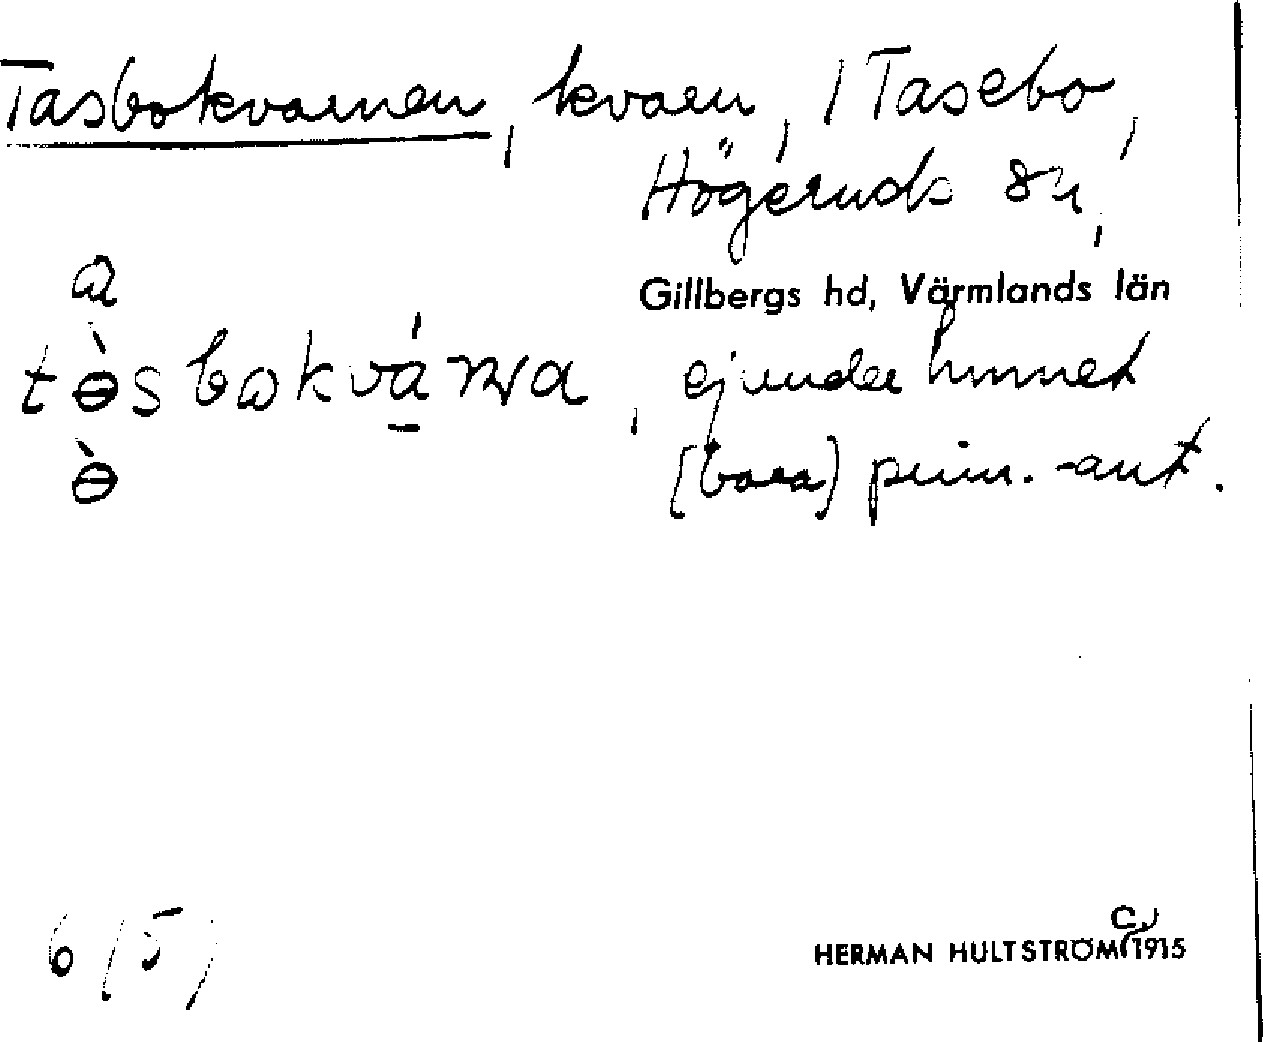 Tasbokvarnen, kvarn, i Tasebo,
Högeruds sn,
Gillbergs hd, Värmlands län
tə̀sbokvá̱rna, ej under hunnet
(bara) prim.-ant.
6 (5)
C.
HERMAN HULTSTRÖM 1915